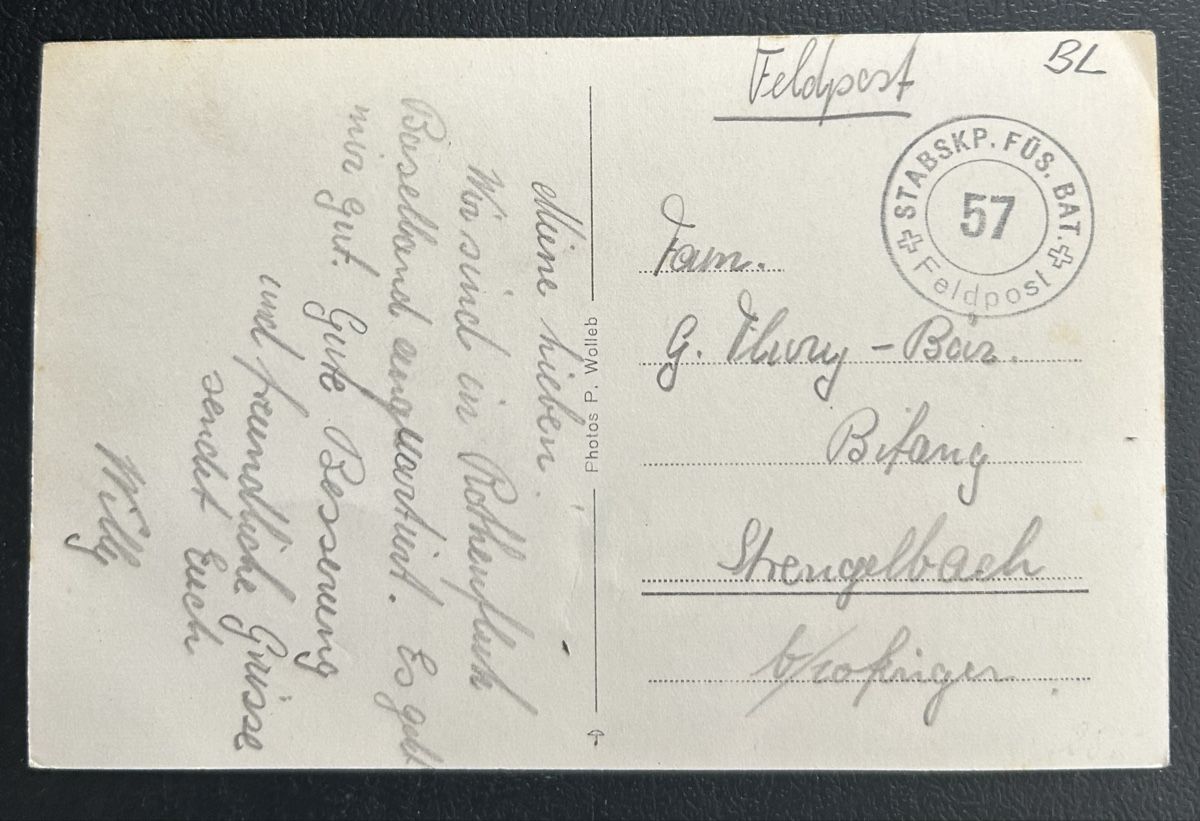 Feldpost
BL
STABSKP. FÜS. BAT.
57
Feldpost
Fam.
G. Thury - Bär.
Bifang
Strengelbach
b/Zofingen
Photos P. Wolleb
Meine Lieben
Wir sind in Rothenfluh
Baselland einquartiert. Es geht
mir gut. Gute Besserung
und freundliche Grüsse
sendet Euch
Willy